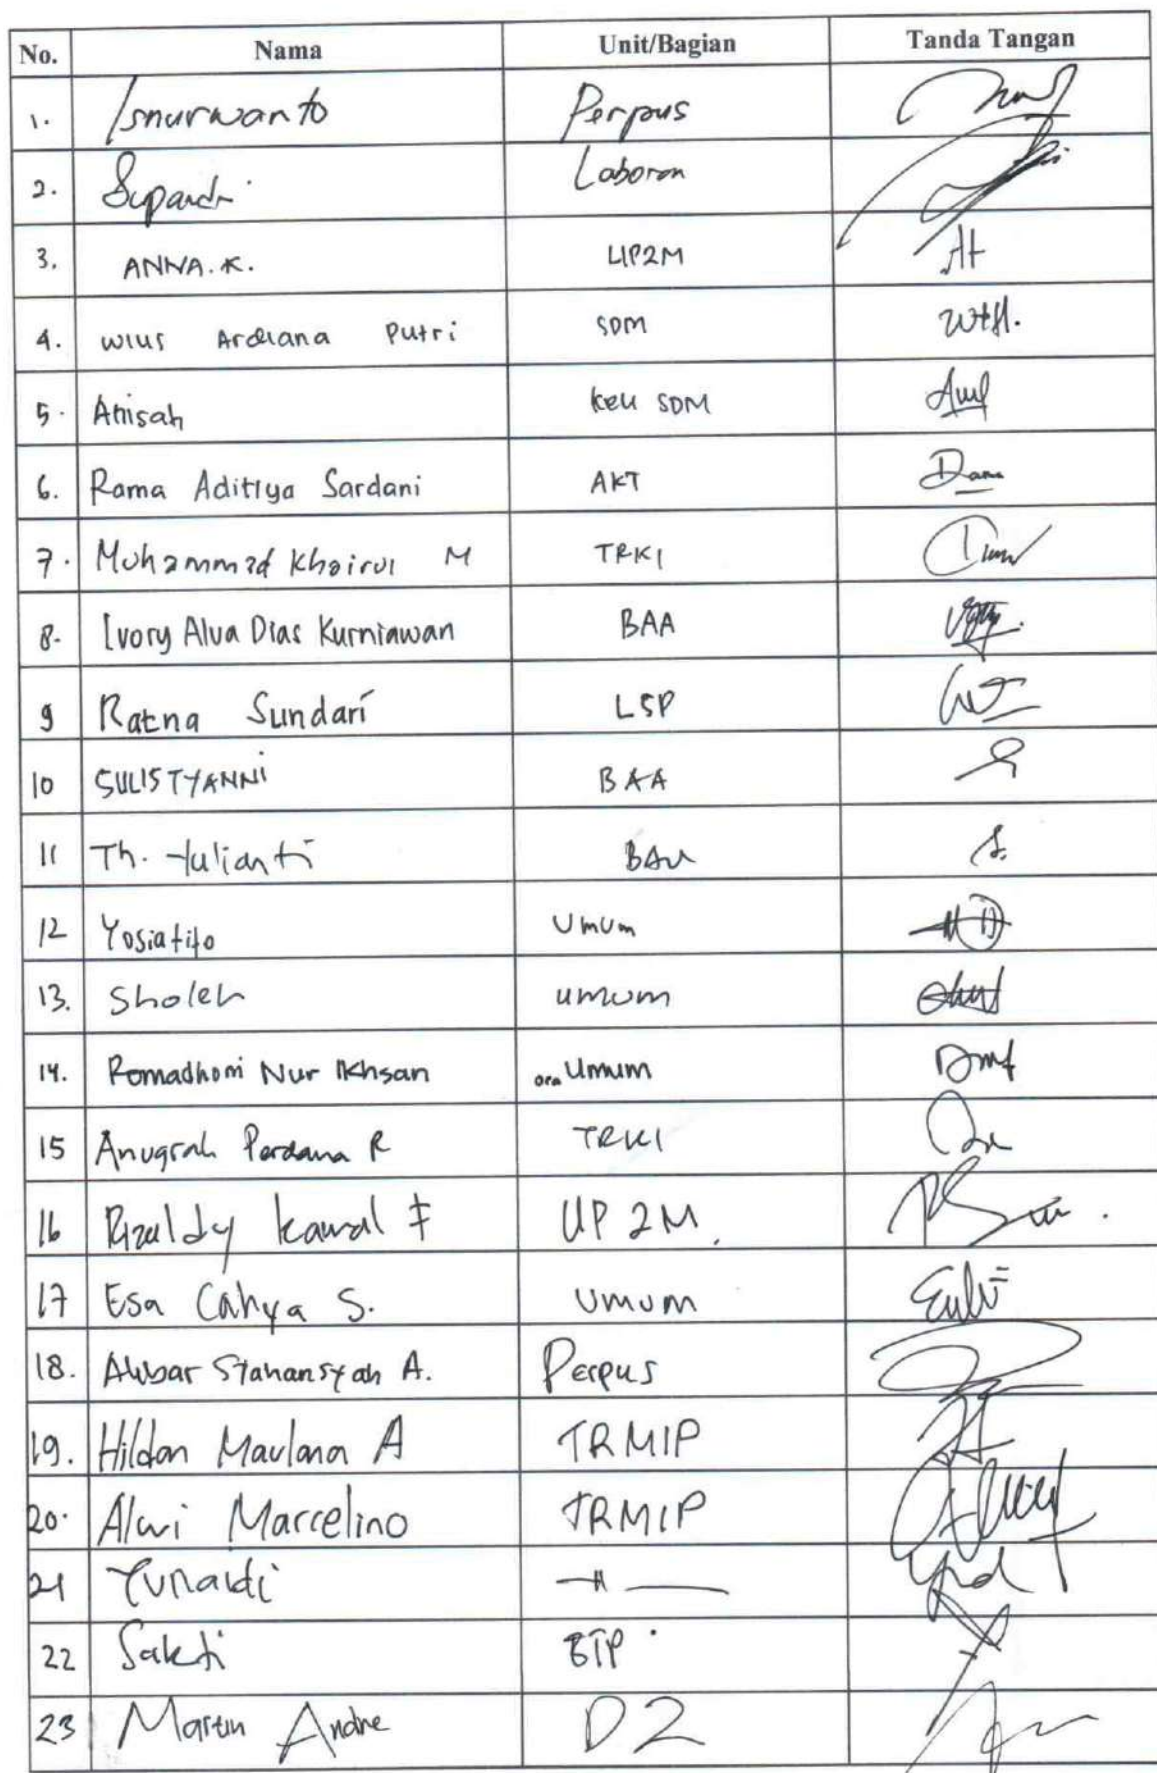 No. Nama Unit/Bagian Tanda Tangan
1. Isnurwanto Perpus
2. Supardi Laboran
3. ANNA.K. UP2M
4. Wius Ardiana Putri SDM
5. Anisah keu SDM
6. Rama Aditiya Sardani AKT
7. Muhammad Khairul M TRKI
8. Ivory Alva Dias Kurniawan BAA
9 Ratna Sundari LSP
10 SULISTYANNI BAA
11 Th. Yulianti BAU
12 Yosiatito Umum
13. Sholeh umum
14. Romadhoni Nur Ikhsan Umum
15 Anugrah Perdana R TRKI
16 Rizaldy kamal F UP2M.
17 Esa Cahya S. Umum
18. Akbar Stahansyah A. Perpus
19. Hildan Maulana A TRMIP
20. Alwi Marcelino TRMIP
21 Yunaldi
22 Sakti BTP
23 Martin Andre D2